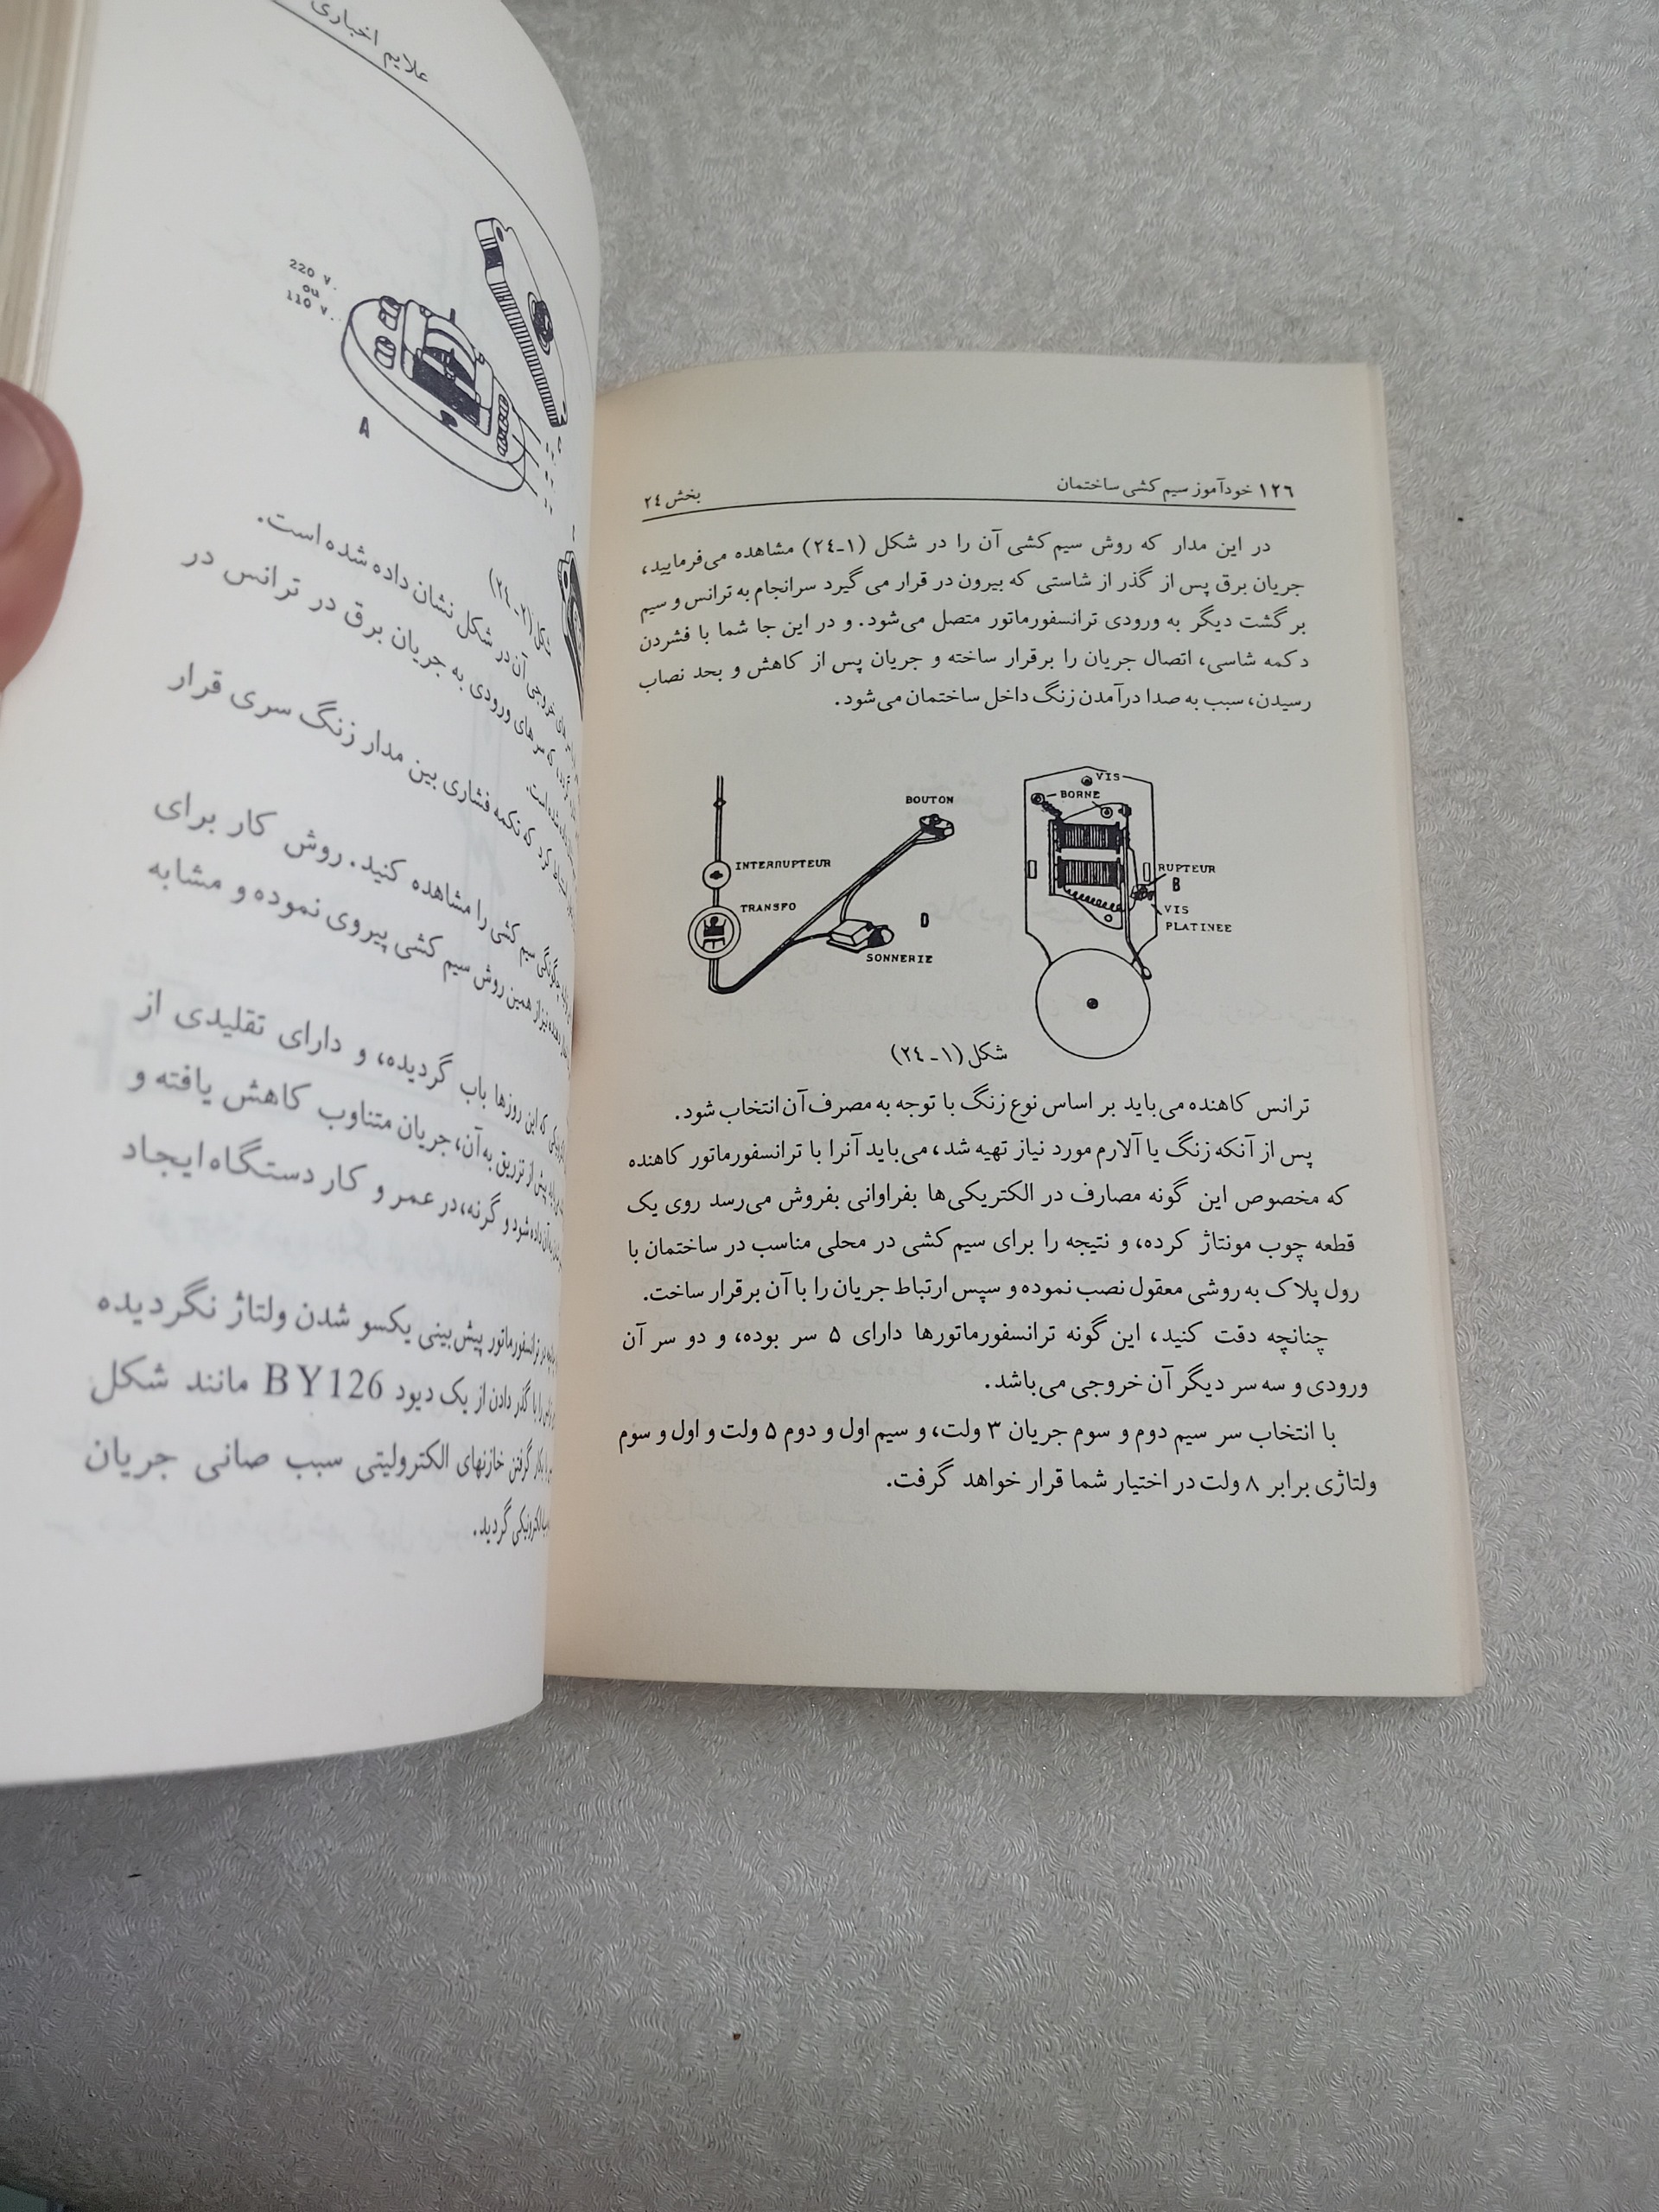 ۱۲٦ خودآموز سیم کشی ساختمان
بخش ۲٤
در این مدار که روش سیم کشی آن را در شکل (۱-۲٤) مشاهده می‌فرمایید،
جریان برق پس از گذر از شاستی که بیرون در قرار می گیرد سرانجام به ترانس و سیم
بر گشت دیگر به ورودی ترانسفورماتور متصل می‌شود. و در این جا شما با فشردن
دکمه شاسی، اتصال جریان را برقرار ساخته و جریان پس از کاهش و بحد نصاب
رسیدن، سبب به صدا درآمدن زنگ داخل ساختمان می‌شود.
VIS
BORNE
BOUTON
INTERRUPTEUR
RUPTEUR
B
TRANSFO
VIS
PLATINEE
D
SONNERIE
شکل (۱-۲٤)
ترانس کاهنده می‌باید بر اساس نوع زنگ با توجه به مصرف آن انتخاب شود.
پس از آنکه زنگ یا آلارم مورد نیاز تهیه شد، می‌باید آنرا با ترانسفورماتور کاهنده
که مخصوص این گونه مصارف در الکتریکی‌ها بفراوانی بفروش می‌رسد روی یک
قطعه چوب مونتاژ کرده، و نتیجه را برای سیم کشی در محلی مناسب در ساختمان با
رول پلاک به روشی معقول نصب نموده و سپس ارتباط جریان را با آن برقرار ساخت.
چنانچه دقت کنید، این گونه ترانسفورماتورها دارای ۵ سر بوده، و دو سر آن
ورودی و سه سر دیگر آن خروجی می‌باشد.
با انتخاب سر سیم دوم و سوم جریان ۳ ولت، و سیم اول و دوم ۵ ولت و اول و سوم
ولتاژی برابر ۸ ولت در اختیار شما قرار خواهد گرفت.
علایم اخباری
220 v.
ou
110 v.
A
شکل (۲-۲٤)
آن در شکل نشان داده شده است.
که سرهای ورودی به جریان برق در ترانس در
داده شده است.
که تکمه فشاری بین مدار زنگ سری قرار
چگونگی سیم کشی را مشاهده کنید. روش کار برای
نیز از همین روش سیم کشی پیروی نموده و مشابه
که این روزها باب گردیده، و دارای تقلیدی از
پیش از تزریق به آن، جریان متناوب کاهش یافته و
داده شود و گرنه، در عمر و کار دستگاه ایجاد
ترانسفورماتور پیش‌بینی یکسو شدن ولتاژ نگردیده
را با گذر دادن از یک دیود BY126 مانند شکل
بکار گرفتن خازنهای الکترولیتی سبب صانی جریان
الکترونیکی گردید.